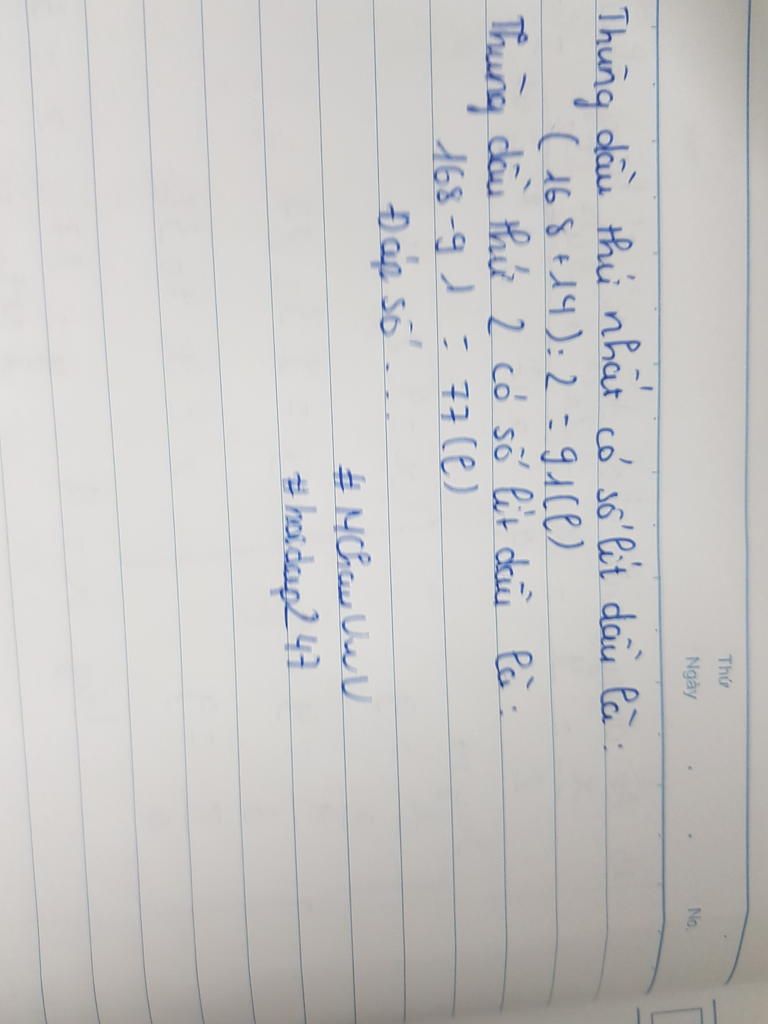 Thứ
Ngày . . No.
Thùng dầu thứ nhất có số lít dầu là :
( 168 + 14 ) : 2 = 91 (l)
Thùng dầu thứ 2 có số lít dầu là :
168 - 91 = 77 (l)
Đáp số . . .
# NChauUwU
# hoidap247